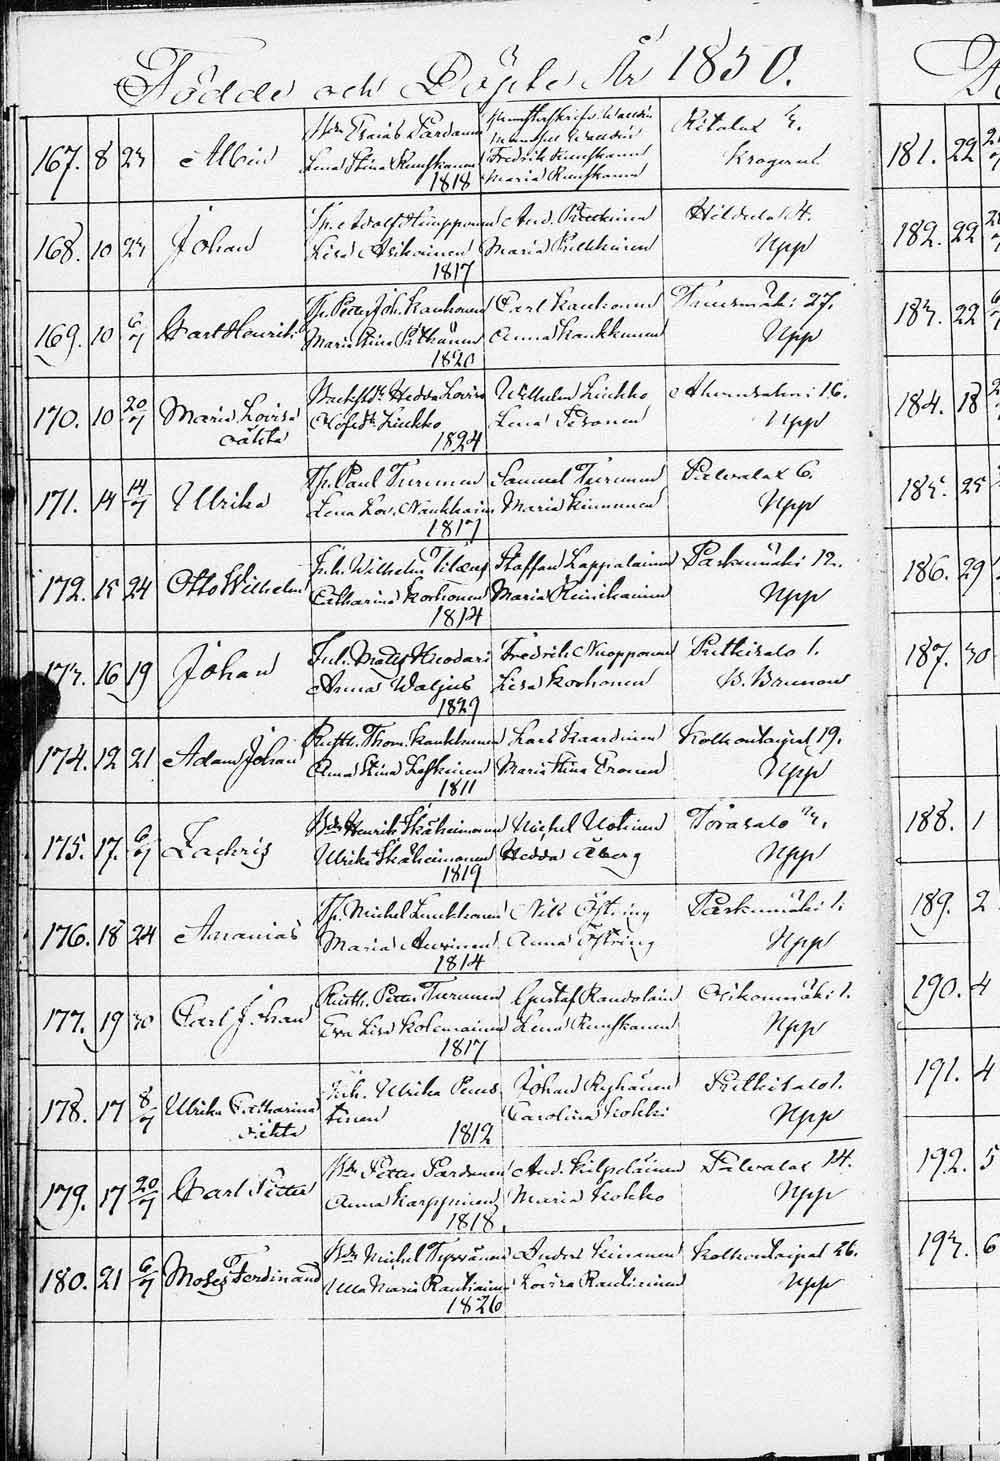 Födde och Döpte År 1850.
167. 8 23 Albin Bdn Esaias Pardanen
Lena Stina Ruuskanen
1818
Fredrik Ruuskanen
Maria Ruuskanen
Kitalax 3.
Krogerus
168. 10 23 Johan Adolf Kimpponen
Lisa Asikainen
1817
And. Pulkkinen
Maria Pulkkinen
4.
Upp
169. 10 6/7 Carl Henrik Tp. Petter Joh. Kauhonen
Maria Stina Pitkänen
1820
Carl Kauhonen
Anna Kaukkunen
27.
Upp
170. 10 20/7 Maria Lovisa
oäkta
Hedda Lovisa
Olofsdr Kiukko
1824
Wilhelm Kiukko
Lena Pesonen
16.
Upp
171. 14 14/7 Ulrika Tp. Paul Turunen
Lena Lov. Naukkarin
1817
Samuel Turunen
Maria Kinnunen
Palvalax 6.
Upp
172. 15 24 Otto Wilhelm Inh. Wilhelm
Catharina Korhonen
1814
Staffan Lappalainen
Maria Reinikainen
Paskumäki 12.
Upp
173. 16 19 Johan Inh. Mats
Anna Waljus
1829
Fredrik Nuopponen
Lisa Korhonen
Putkisalo 1.
B. Brunou
174. 12 21 Adam Johan Thom. Kaukkunen
Anna Stina Laskinen
1811
Lars Kaardinen
Maria Stina Eronen
Kolkontaipal 19.
Upp
175. 17. 6/7 Zachris Bdn Henrik Ikäheimonen
Ulrika Ikäheimonen
1819
Michel Uotinen
Hedda Åberg
Torasalo 3.
Upp
176. 18 24 Ananias Tp. Michel Luukkonen
Maria Auvinen
1814
Nils Östring
Anna Östring
Paskumäki 1.
Upp
177. 19 30 Carl Johan Petter Turunen
Eva Lisa Kolemainen
1817
Gustaf Randolin
Lena Ruuskanen
Oikonmäki 1.
Upp
178. 17 8/7 Ulrika Catharina
oäkta
Inh. Ulrika Pens
tinen
1812
Johan Ryhänen
Carolina Kokki
Putkisalo 1.
Upp
179. 17 20/7 Carl Petter Bdn Petter Pardanen
Anna Karppinen
1818
And. Kilpeläinen
Maria Kokko
Palvalax 14.
Upp
180. 21 6/7 Moses Ferdinand Bdn Michel Tyrväinen
Ulla Maria Rautiainen
1826
Anders Keinanen
Lovisa Rautiainen
Kolkontaipal 26.
Upp
181. 22
182. 22
183. 22
184. 18
185. 25
186. 29
187. 30
188. 1
189. 2
190. 4
191. 4
192. 5
193. 6